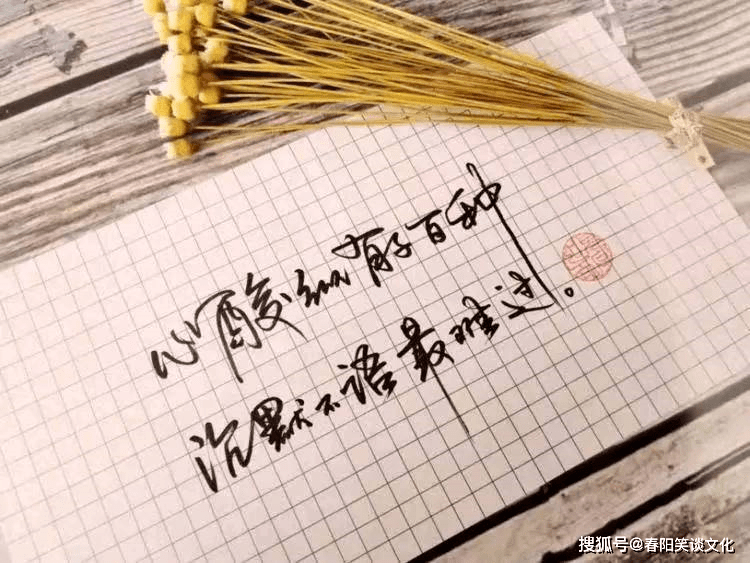 心酸纵有千百种
沉默不语最难过。
搜狐号@春阳笑谈文化